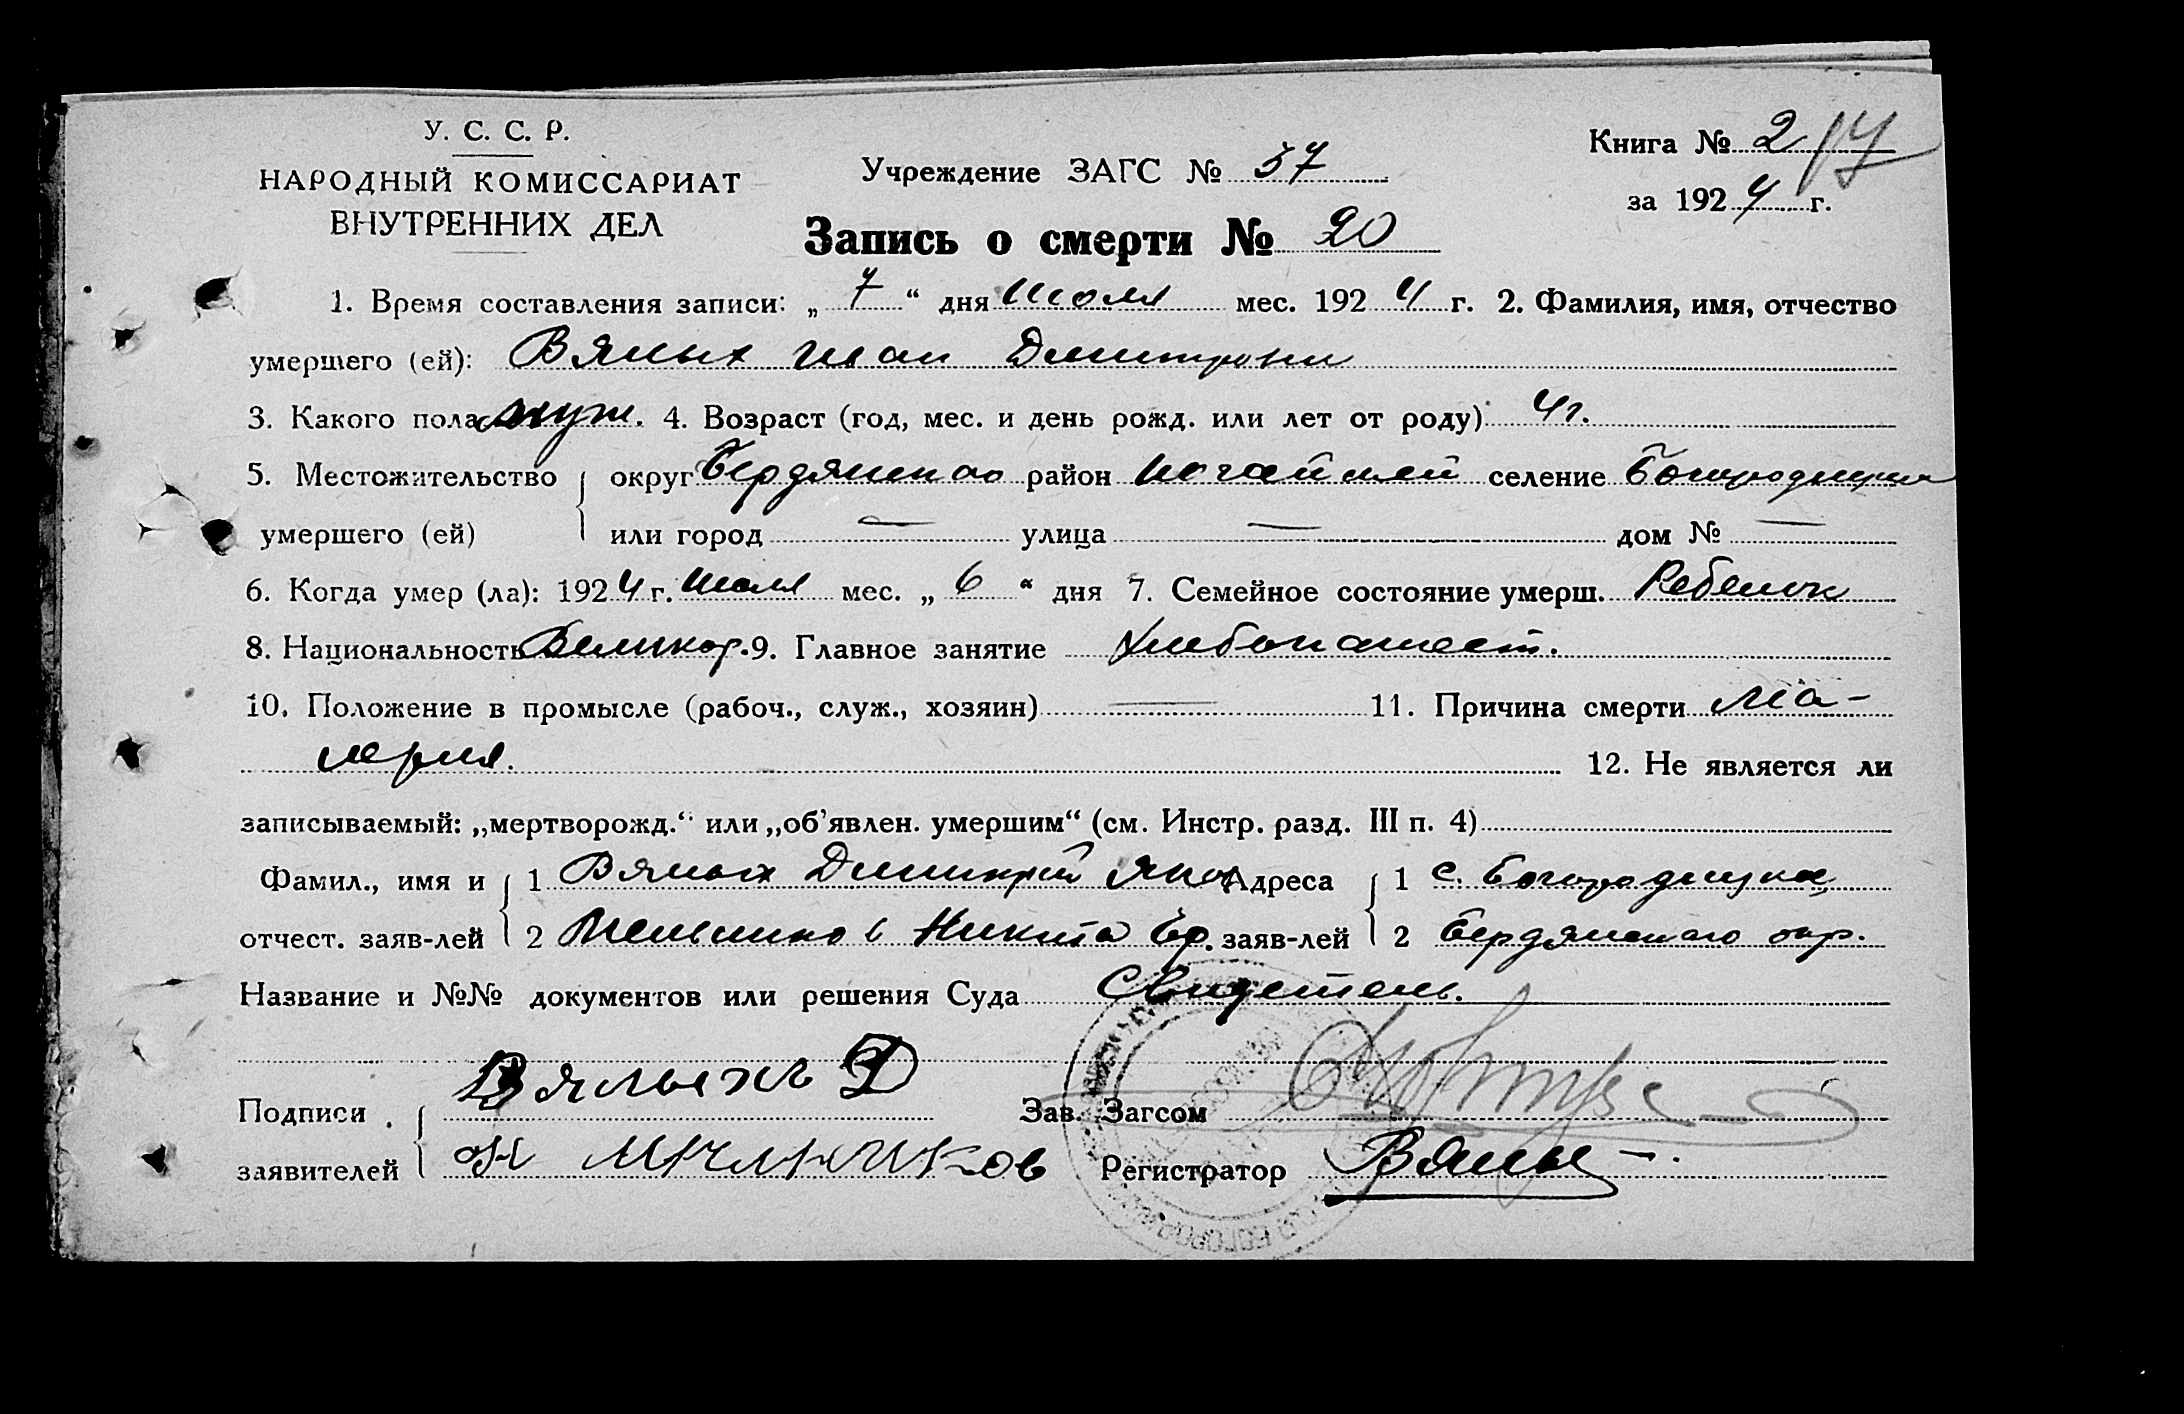 У. С. С. Р.
НАРОДНЫЙ КОМИССАРИАТ
ВНУТРЕННИХ ДЕЛ
Учреждение ЗАГС № 37
Книга № 2
за 1924 г.
Запись о смерти № 20
1. Время составления записи: „ 7 “ дня Июля мес. 1924 г. 2. Фамилия, имя, отчество
умершего (ей): Вялых Иван Дмитров
3. Какого пола муж. 4. Возраст (год, мес. и день рожд. или лет от роду) 4 г.
5. Местожительство { округ Бердянского район Ногайский селение Богородицкая
умершего (ей) или город — улица — дом № —
6. Когда умер (ла): 1924 г. Июля мес. „ 6 “ дня 7. Семейное состояние умерш. Ребенок
8. Национальность Великор. 9. Главное занятие Хлебопашест.
10. Положение в промысле (рабоч., служ., хозяин) — 11. Причина смерти Ма-
лерия. 12. Не является ли
записываемый: „мертворожд.“ или „об’явлен. умершим“ (см. Инстр. разд. III п. 4)
Фамил., имя и { 1 Вялых Дмитрий Яков Адреса { 1 с. Богородицкая
отчест. заяв-лей 2 Мельников Никита Ер. заяв-лей 2 Бердянского окр.
Название и №№ документов или решения Суда Свидетель.
Подписи { Вялыхъ Д Зав. Загсом
заявителей Н Мельников Регистратор Вялы